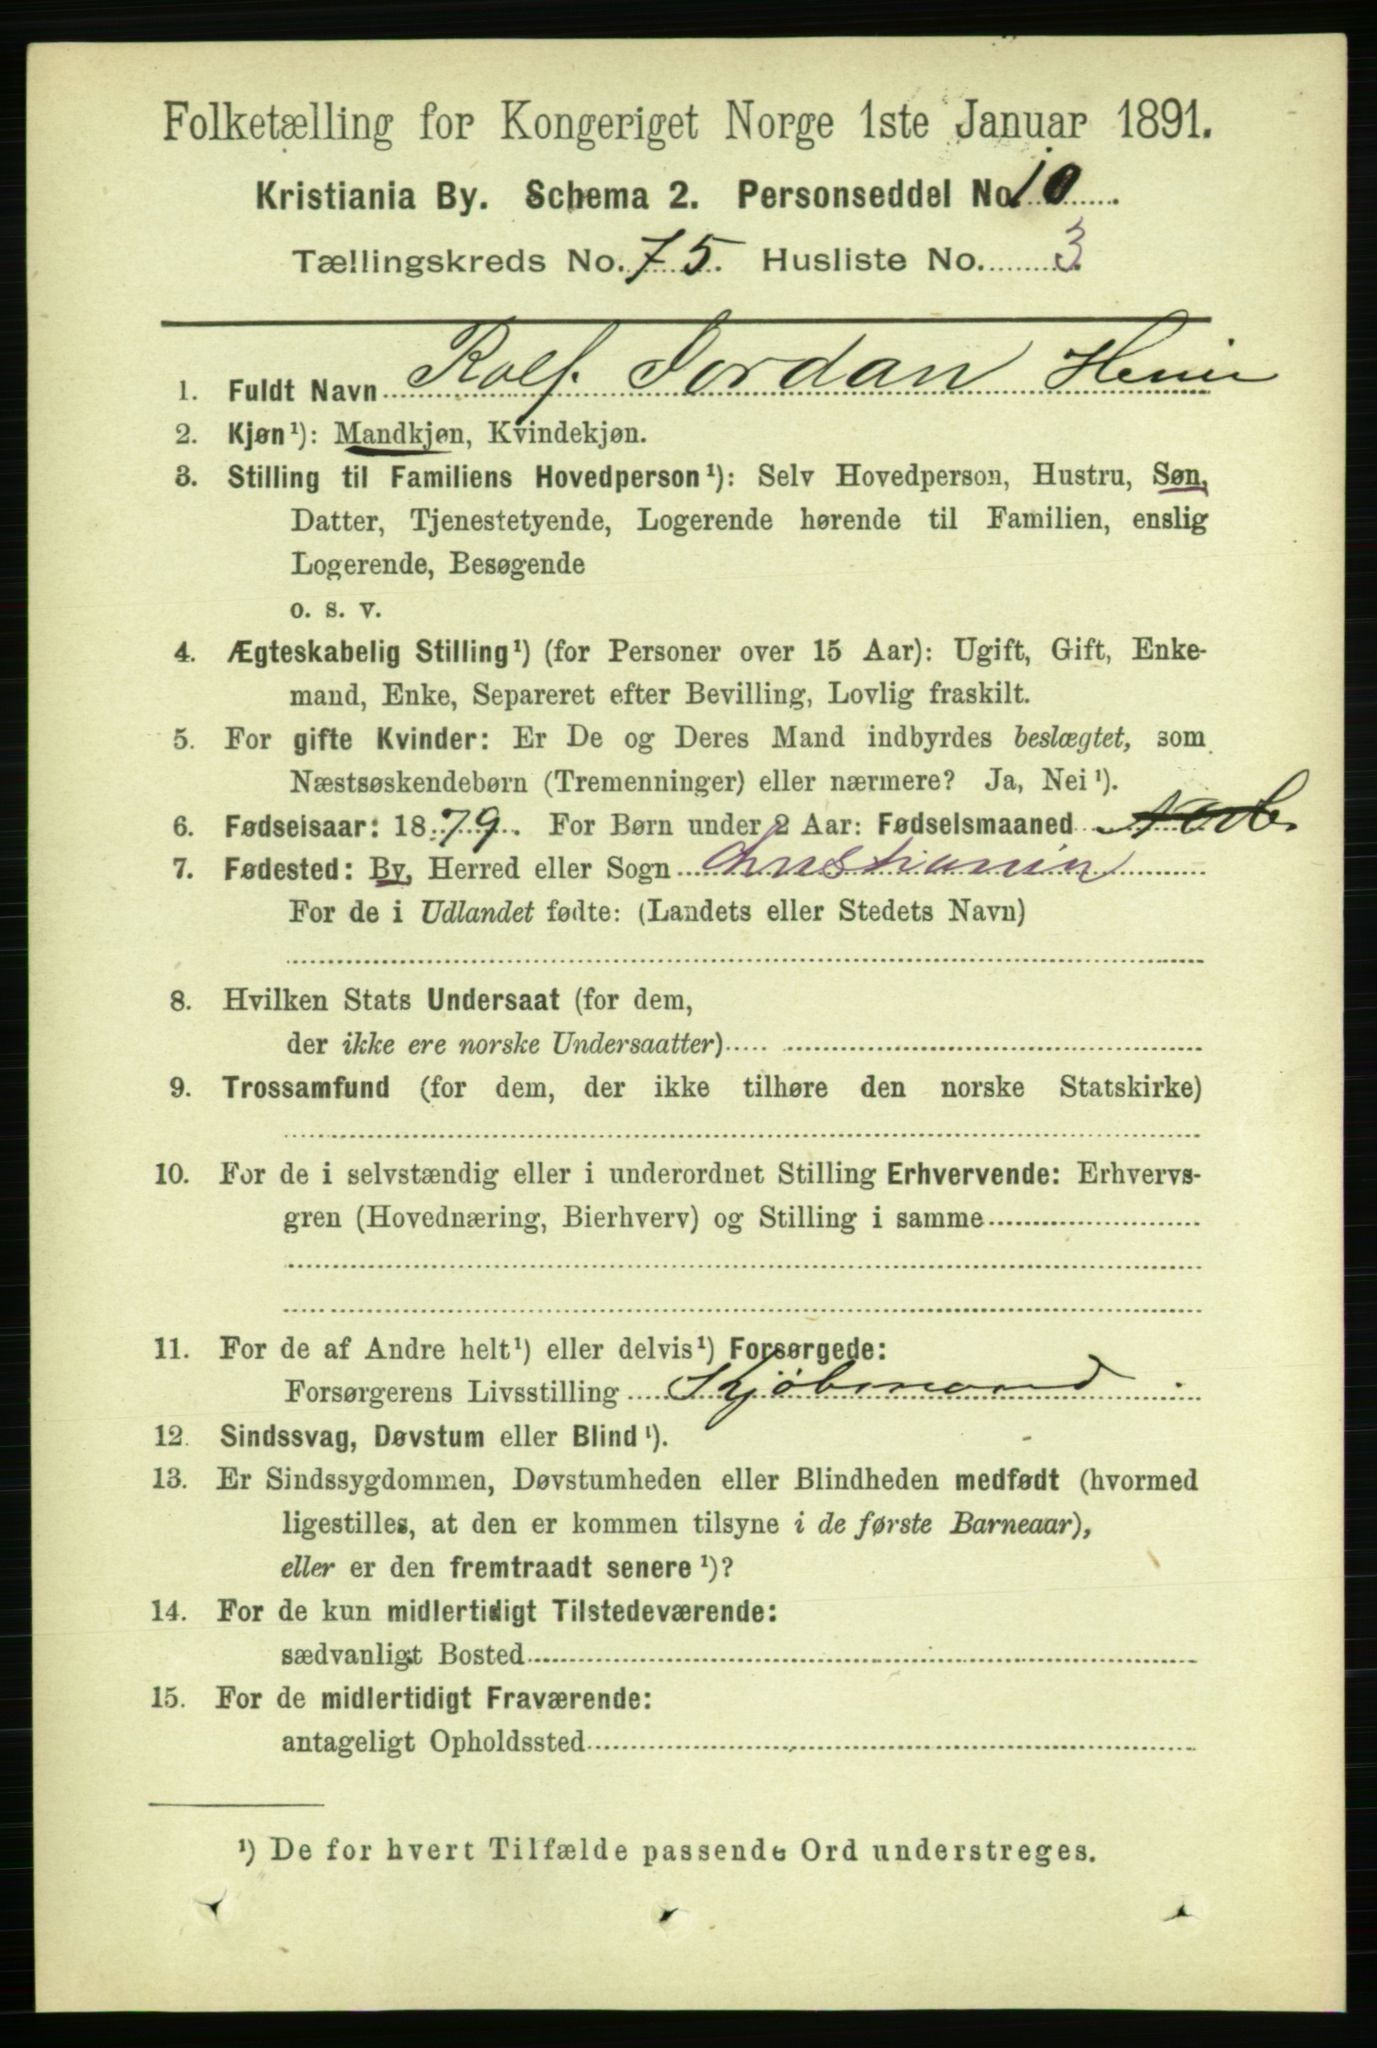 Folketælling for Kongeriget Norge 1ste Januar 1891.
Kristiania By. Schema 2. Personseddel No 10
Tællingskreds No. 75. Husliste No. 3
1. Fuldt Navn Rolf Jordan
2. Kjøn¹): Mandkjøn, Kvindekjøn.
3. Stilling til Familiens Hovedperson¹): Selv Hovedperson, Hustru, Søn,
Datter, Tjenestetyende, Logerende hørende til Familien, enslig
Logerende, Besøgende
o. s. v.
4. Ægteskabelig Stilling¹) (for Personer over 15 Aar): Ugift, Gift, Enke-
mand, Enke, Separeret efter Bevilling, Lovlig fraskilt.
5. For gifte Kvinder: Er De og Deres Mand indbyrdes beslægtet, som
Næstsøskendebørn (Tremenninger) eller nærmere? Ja, Nei¹).
6. Fødselsaar: 1879. For Børn under 2 Aar: Fødselsmaaned
7. Fødested: By, Herred eller Sogn Christiania
For de i Udlandet fødte: (Landets eller Stedets Navn)
8. Hvilken Stats Undersaat (for dem,
der ikke ere norske Undersaatter)
9. Trossamfund (for dem, der ikke tilhøre den norske Statskirke)
10. For de i selvstændig eller i underordnet Stilling Erhvervende: Erhvervs-
gren (Hovednæring, Bierhverv) og Stilling i samme
11. For de af Andre helt¹) eller delvis¹) Forsørgede:
Forsørgerens Livsstilling Kjøbmand
12. Sindssvag, Døvstum eller Blind¹).
13. Er Sindssygdommen, Døvstumheden eller Blindheden medfødt (hvormed
ligestilles, at den er kommen tilsyne i de første Barneaar),
eller er den fremtraadt senere¹)?
14. For de kun midlertidigt Tilstedeværende:
sædvanligt Bosted
15. For de midlertidigt Fraværende:
antageligt Opholdssted
¹) De for hvert Tilfælde passende Ord understreges.